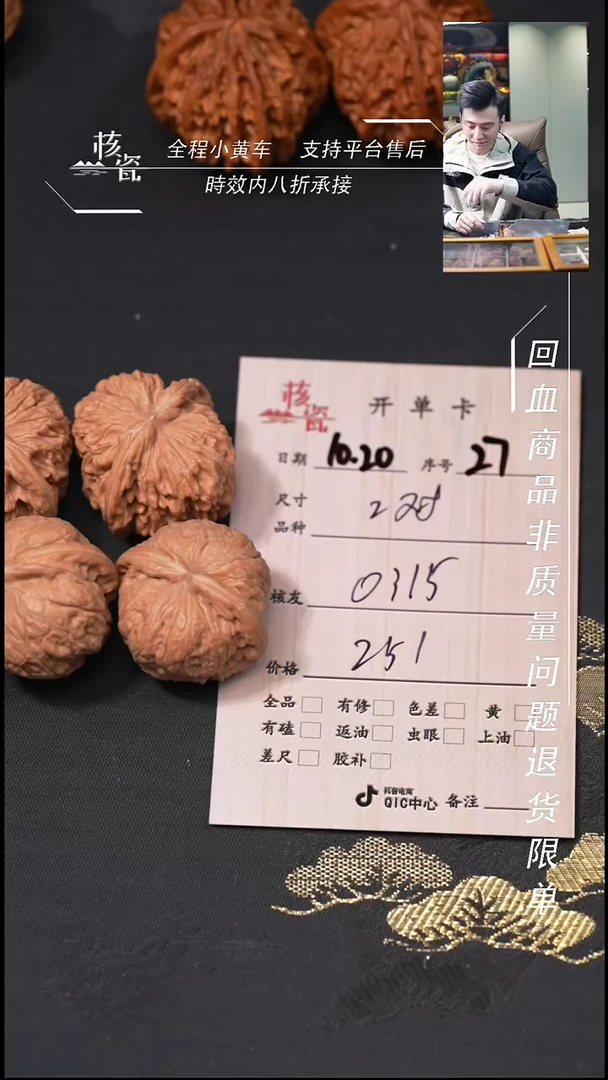 核瓷
全程小黄车 支持平台售后
時效内八折承接
回血商品非质量问题退货限单
核瓷
开单卡
日期 10.20 序号 27
尺寸
品种
核友 0315
价格 251
全品 有修 色差 黄
有磕 返油 虫眼 上油
差尺 胶补
抖音电商
QIC中心 备注